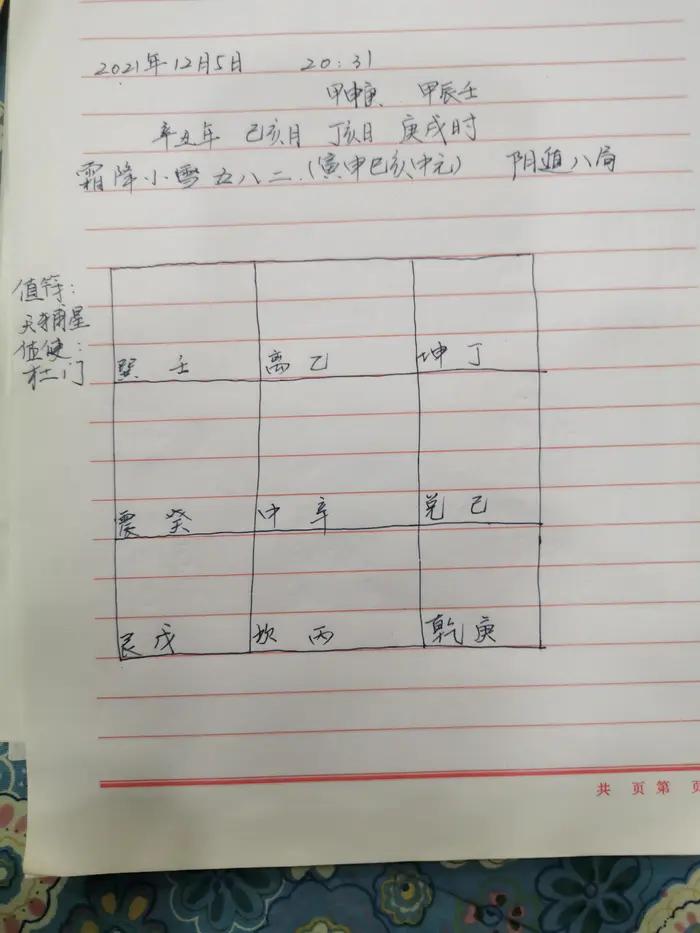 2021年12月5日 20:31
甲申庚 甲辰壬
辛丑年 己亥月 丁亥日 庚戌时
霜降小雪五八二.(寅申巳亥中元) 阴遁八局
值符:
天辅星
值使:
杜门
巽 壬 离 乙 坤 丁
震 癸 中 辛 兑 己
艮 戊 坎 丙 乾 庚
共 页 第 页